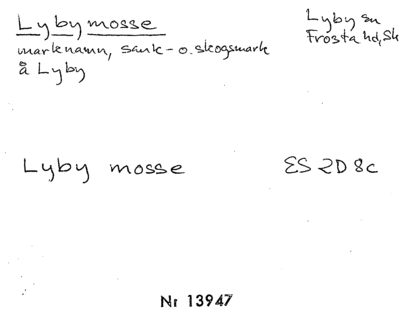 Lyby mosse
marknamn, sank- o. skogsmark
å Lyby
Lyby sn
Frosta hd, Sk
Lyby mosse
ES 2D 8c
Nr 13947